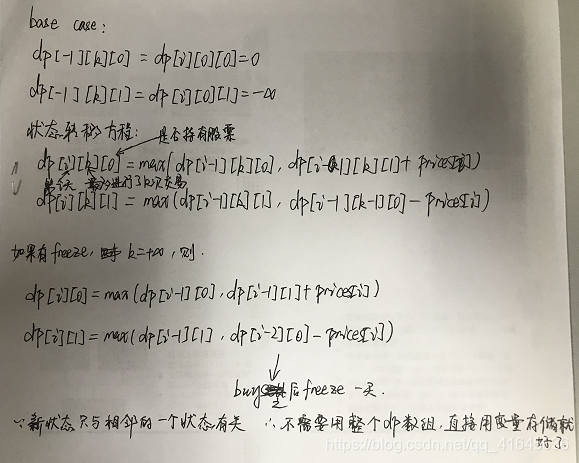 base case:
dp[-1][k][0] = dp[i][0][0]=0
dp[-1][k][1]=dp[i][0][1]=-∞
状态转移方程: 是否持有股票
dp[i][k][0]=max(dp[i-1][k][0], dp[i-1][k][1]+prices[i])
第i天 最多进行了k次交易
dp[i][k][1] = max(dp[i-1][k][1], dp[i-1][k-1][0]-prices[i])
如果有freeze, k=+∞, 则.
dp[i][0]=max(dp[i-1][0], dp[i-1][1]+prices[i])
dp[i][1]=max(dp[i-1][1], dp[i-2][0]-prices[i])
buy 后freeze 一天.
∵新状态只与相邻的一个状态有关 ∴不需要用整个dp数组,直接用变量存储就
好了